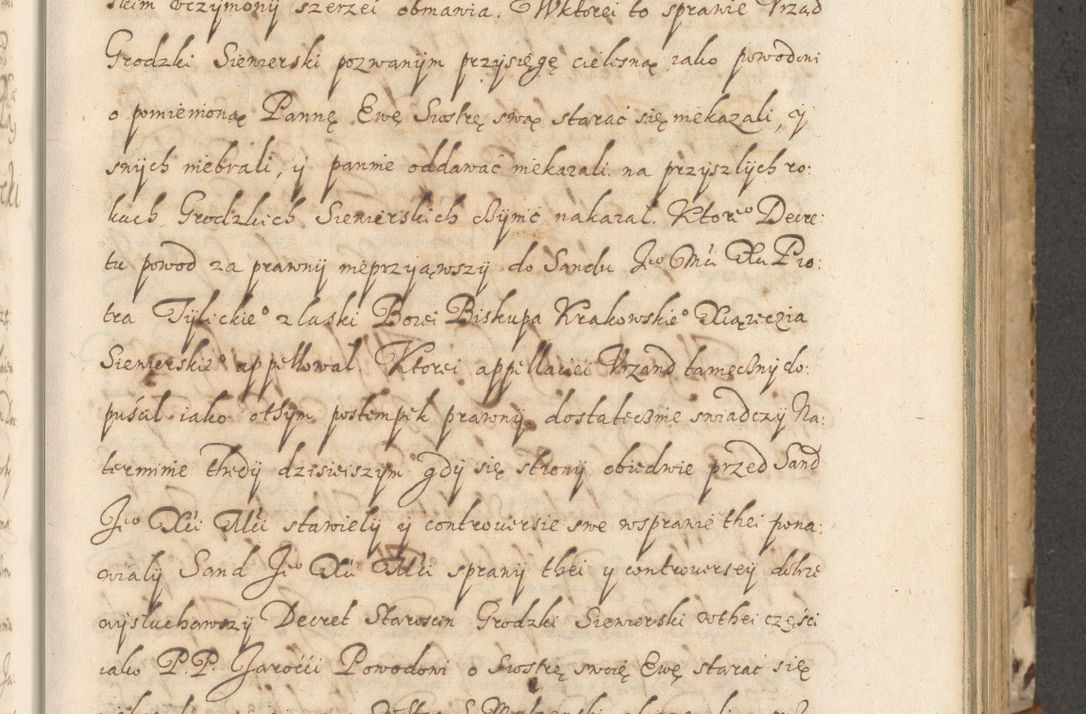 skim vczymony szerzei obmawia. Wktorei to sprawie Vrząd
Grodzki Siewierski pozwanym przysięgę cielesną iako powodowi
o pomienioną Pannę Ewę Siostrę swą starac się niekazali, y
snych niebrali, y pannie oddawać niekazali. na przyszlych ro:
kach Grodzkich Siewierskich czynic nakazal. Ktore° Decre:
tu powod za prawny nieprzyiąwszy do Sandu Je° Mci Xa Pio:
tra Tylickie° z laski Bozei Biskupa Krakowskie° Xiązęczia
Siewierskie° appellowal. Ktorei appellaciei Vrzand tameczny do:
puscil iako otsym postempek prawny dostatecznie swiadczy Na:
terminie thedy dzisieiszym gdy się strony obiedwie przed Sand
Je° Xei Mci stawiely y controversie swe wsprawie thei pona:
wialy Sand Je° Xei Mci sprawy thei y controversey dobrze
wysluchawszy Decret Staroscin Grodzki Siewierski wthei części
iako P.P. Jarocci Powodowi o Siostrę swoię Ewę starac się